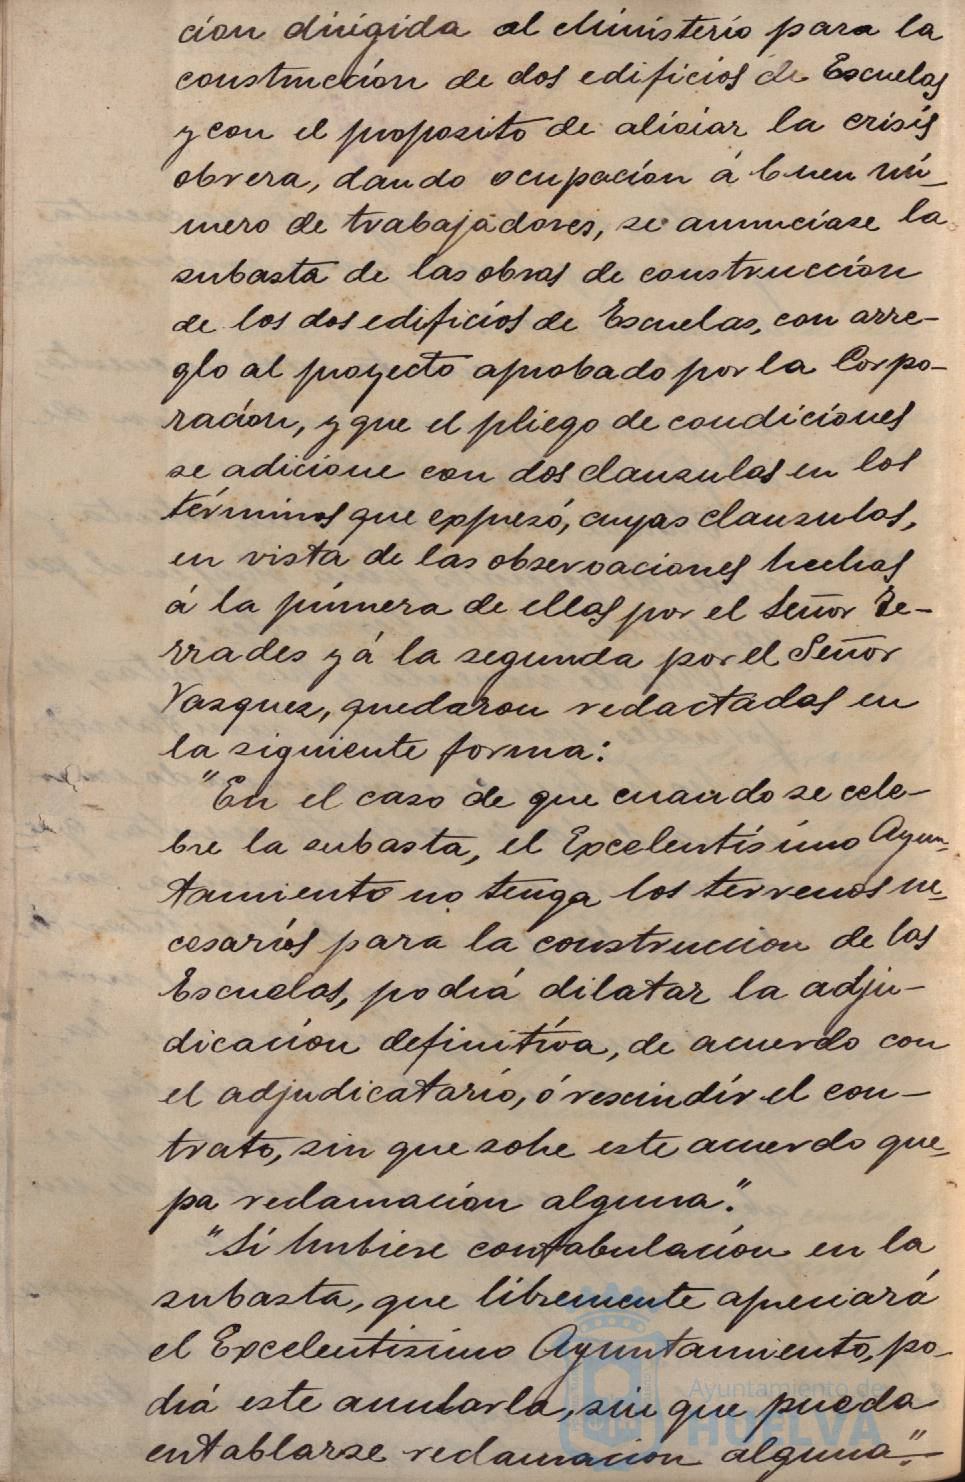 cion dirigida al Ministerio para la
construcción de dos edificios de Escuelas
y con el proposito de aliviar la crisis
obrera, dando ocupación á buen nú-
mero de trabajadores, se anunciase la
subasta de las obras de construcción
de los dos edificios de Escuelas, con arre-
glo al proyecto aprobado por la Corpo-
ración, y que el pliego de condiciones
se adicione con dos clausulas en los
términos que expresó, cuyas clausulas,
en vista de las observaciones hechas
á la primera de ellas por el Señor Te-
rrades y á la segunda por el Señor
Vazquez, quedaron redactadas en
la siguiente forma:
"En el caso de que cuando se cele-
bre la subasta, el Excelentísimo Ayun-
tamiento no tenga los terrenos ne-
cesarios para la construccion de las
Escuelas, podrá dilatar la adju-
dicación definitiva, de acuerdo con
el adjudicatario, ó rescindir el con-
trato, sin que sobre este acuerdo que-
pa reclamación alguna".
"Si hubiere confabulación en la
subasta, que libremente apreciará
el Excelentisimo Ayuntamiento, po-
drá este anularla, sin que pueda
entablarse reclamacion alguna".-
Ayuntamiento de
HUELVA